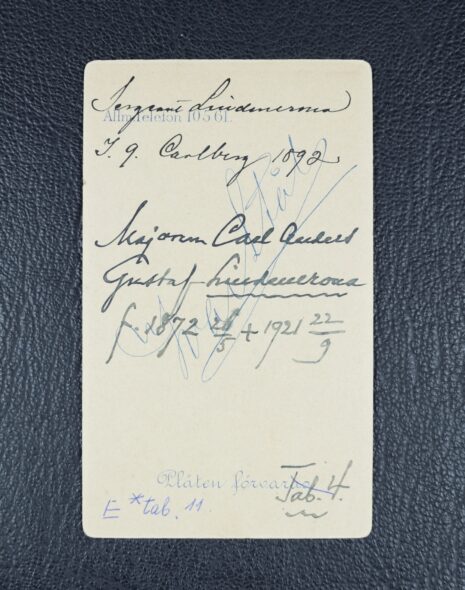 Sergeant Lindencrona
Allm. Telefon 105 61.
I. g. Carlberg 1892
Majoren Carl Anders
Gustaf Lindencrona
f. 1872 26/5 + 1921 22/9
Pläten förvaras
Tab. 4.
E *tab. 11